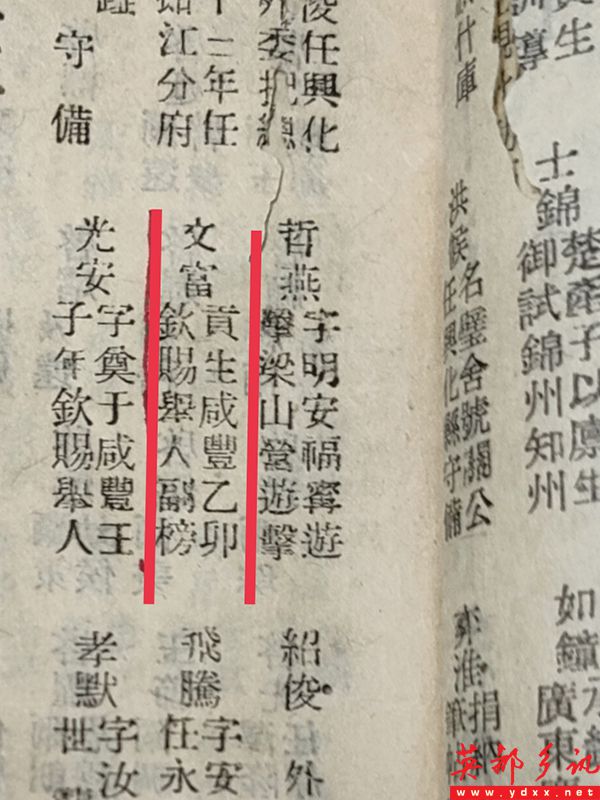 士錦
楚產子以廩生
御試錦州知州
如鐘
廣東
洪候
名璧舍號關公
任興化縣守備
捐
俊任興化
外委把總
十二年任
江分府
守備
哲燕
字明安福寧遊
擊梁山營遊擊
文富
貢生咸豐乙卯
欽賜舉人副榜
光安
字奠于咸豐壬
子年欽賜舉人
紹俊
外
飛騰
字安
任永
孝默
字汝
世
英都乡讯
www.ydxx.net